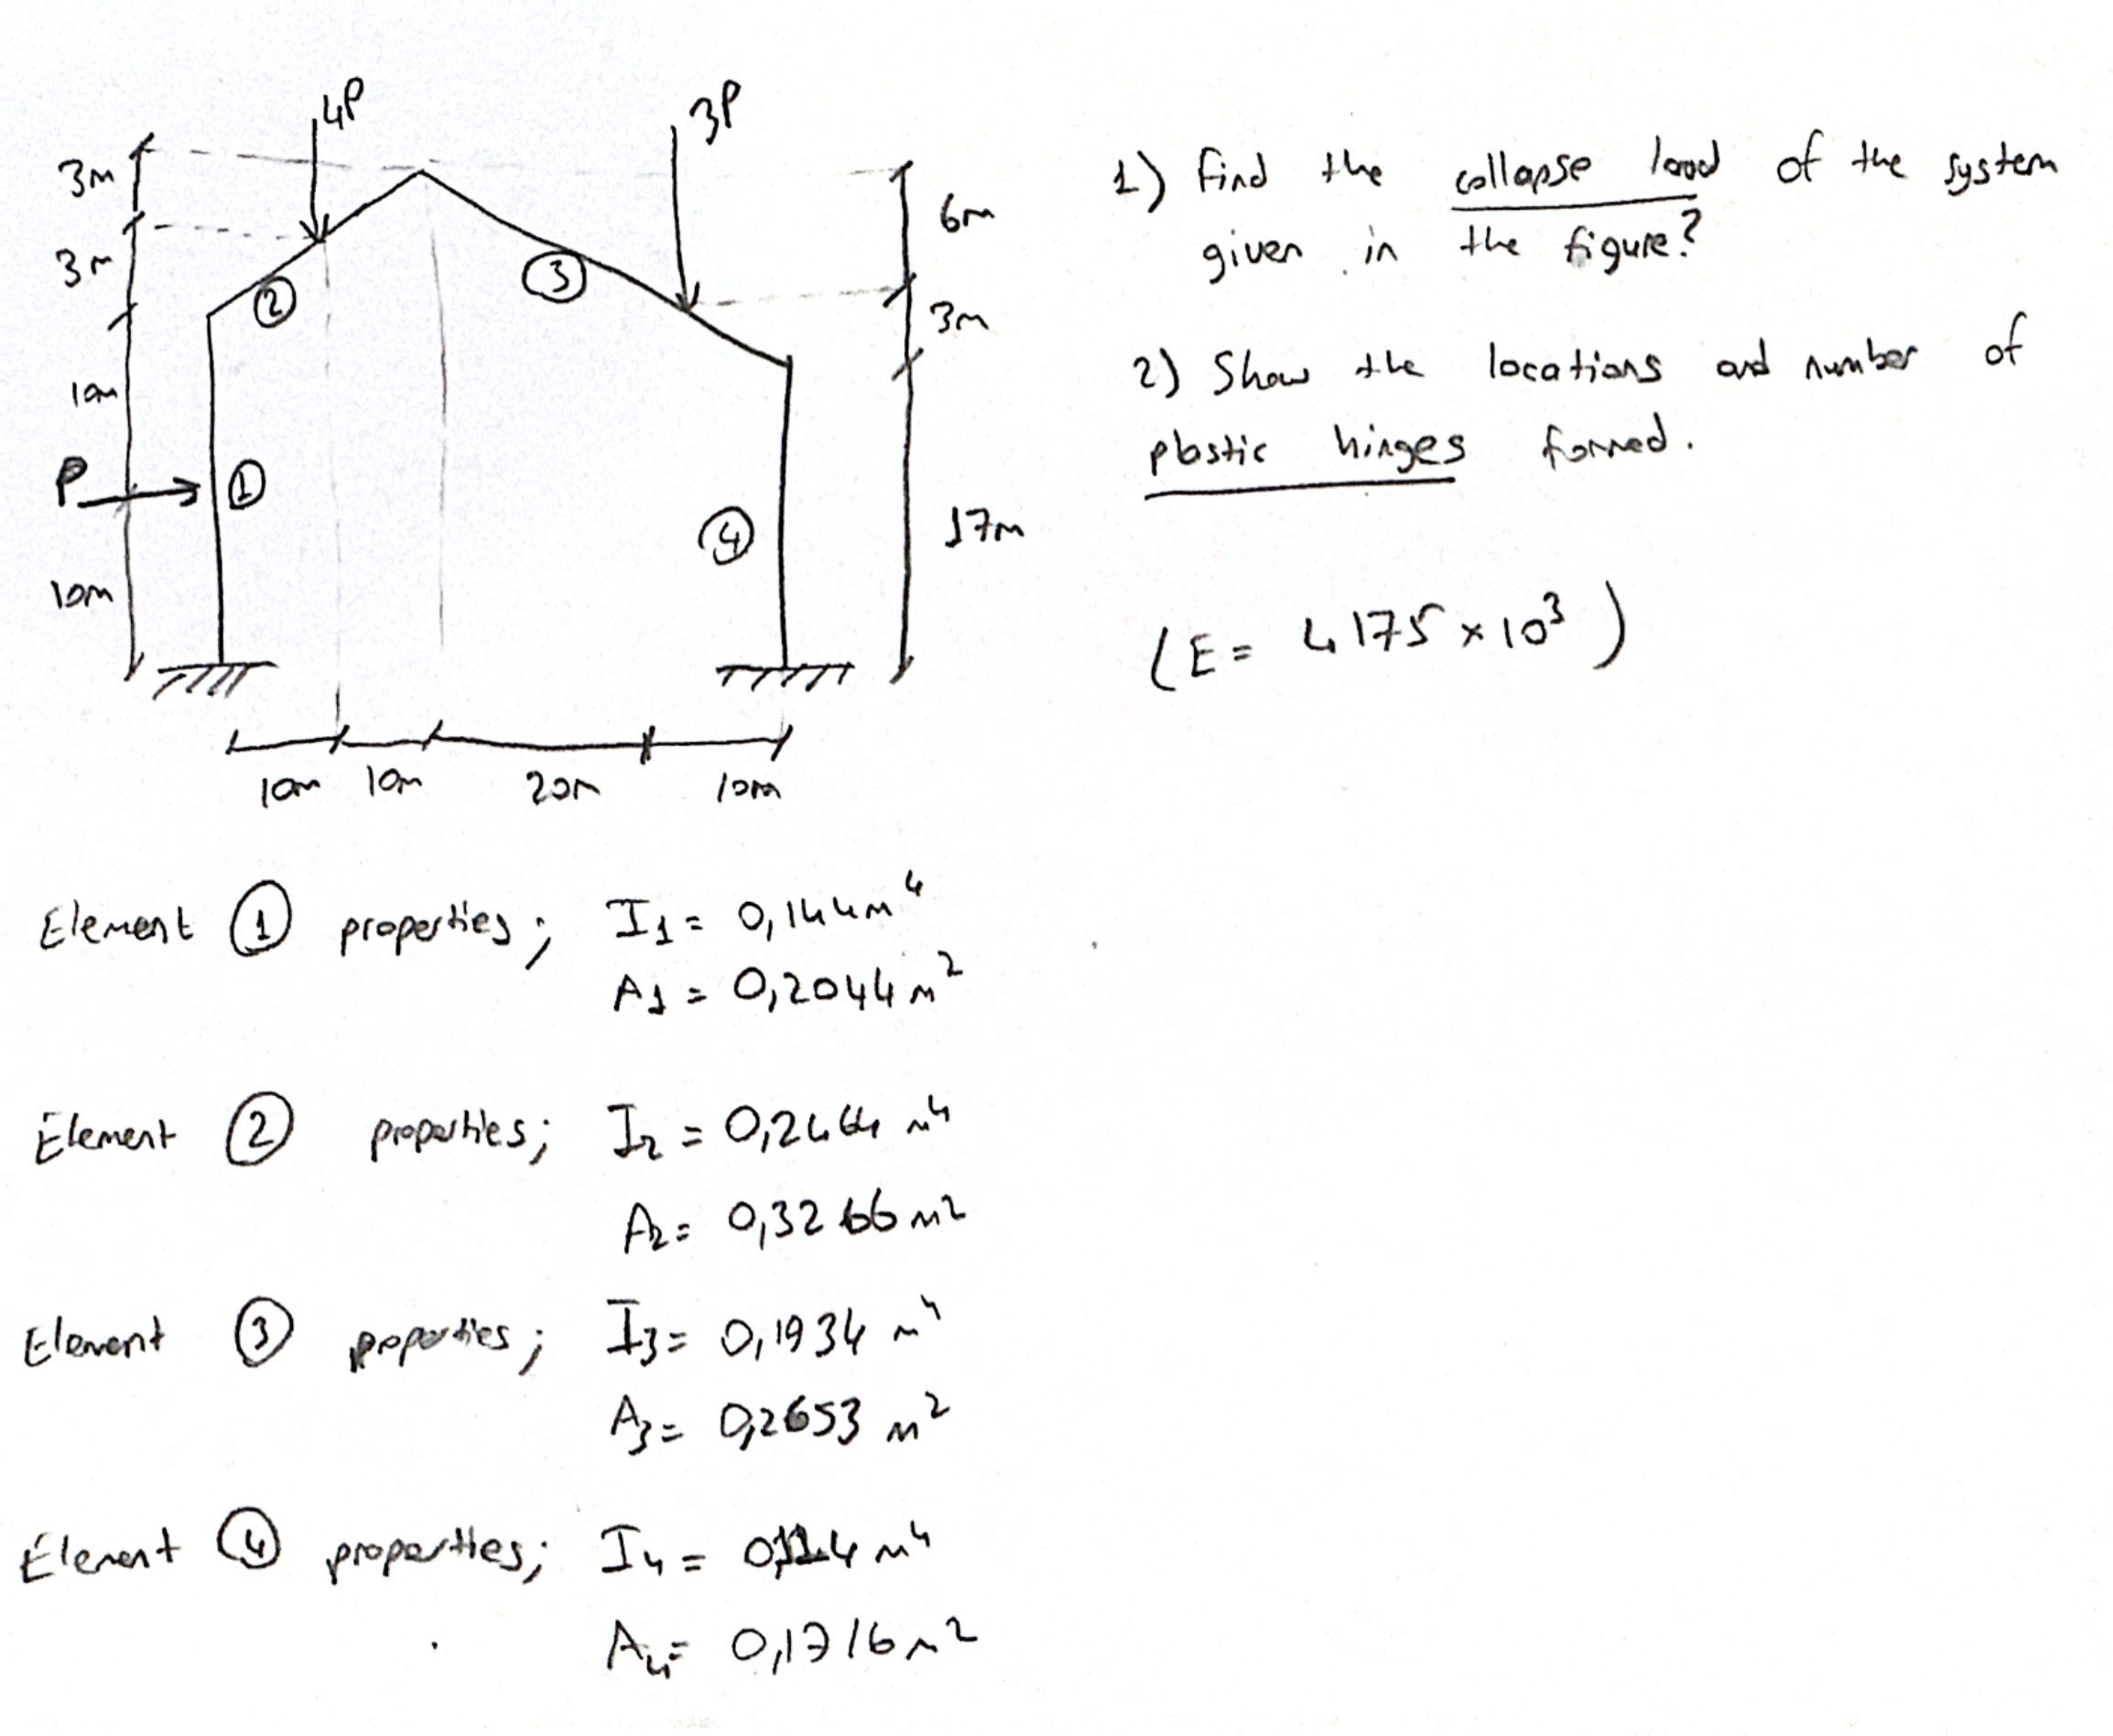 4P
3P
3m
3m
10m
P
10m
6m
3m
17m
①
②
③
④
10m 10m 20m 10m
1) find the collapse load of the system
given in the figure?
2) Show the locations and number of
plastic hinges formed.
(E = 4175 × 10³)
Element ① properties; I₁ = 0,144m⁴
A₁ = 0,2044m²
Element ② properties; I₂ = 0,2464 m⁴
A₂ = 0,3266 m²
Element ③ properties; I₃ = 0,1934 m⁴
A₃ = 0,2653 m²
Element ④ properties; I₄ = m⁴
A₄ = 0,1716m²